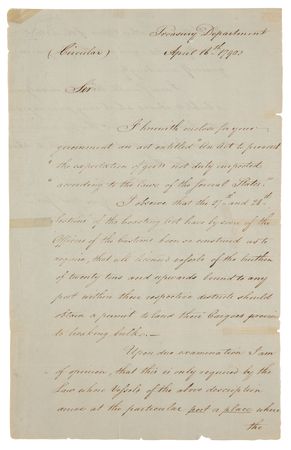 Treasury Department
(Circular) April 16th 1790
Sir
I herewith enclose for your
government an act entitled An Act to prevent
"the exportation of goods not duly inspected
"according to the laws of the several States."
I observe that the 27th and 28th
Sections of the Coasting Act have by some of the
Officers of the Customs been so construed as to
require, that all licenced vessels of the burthen
of twenty tons and upwards bound to any
port within their respective districts should
obtain a permit to land their Cargoes previous
to breaking bulk.—
Upon due examination I am
of opinion, that this is only required by the
Law where Vessels of the above description
arrive at the particular port or place where
the